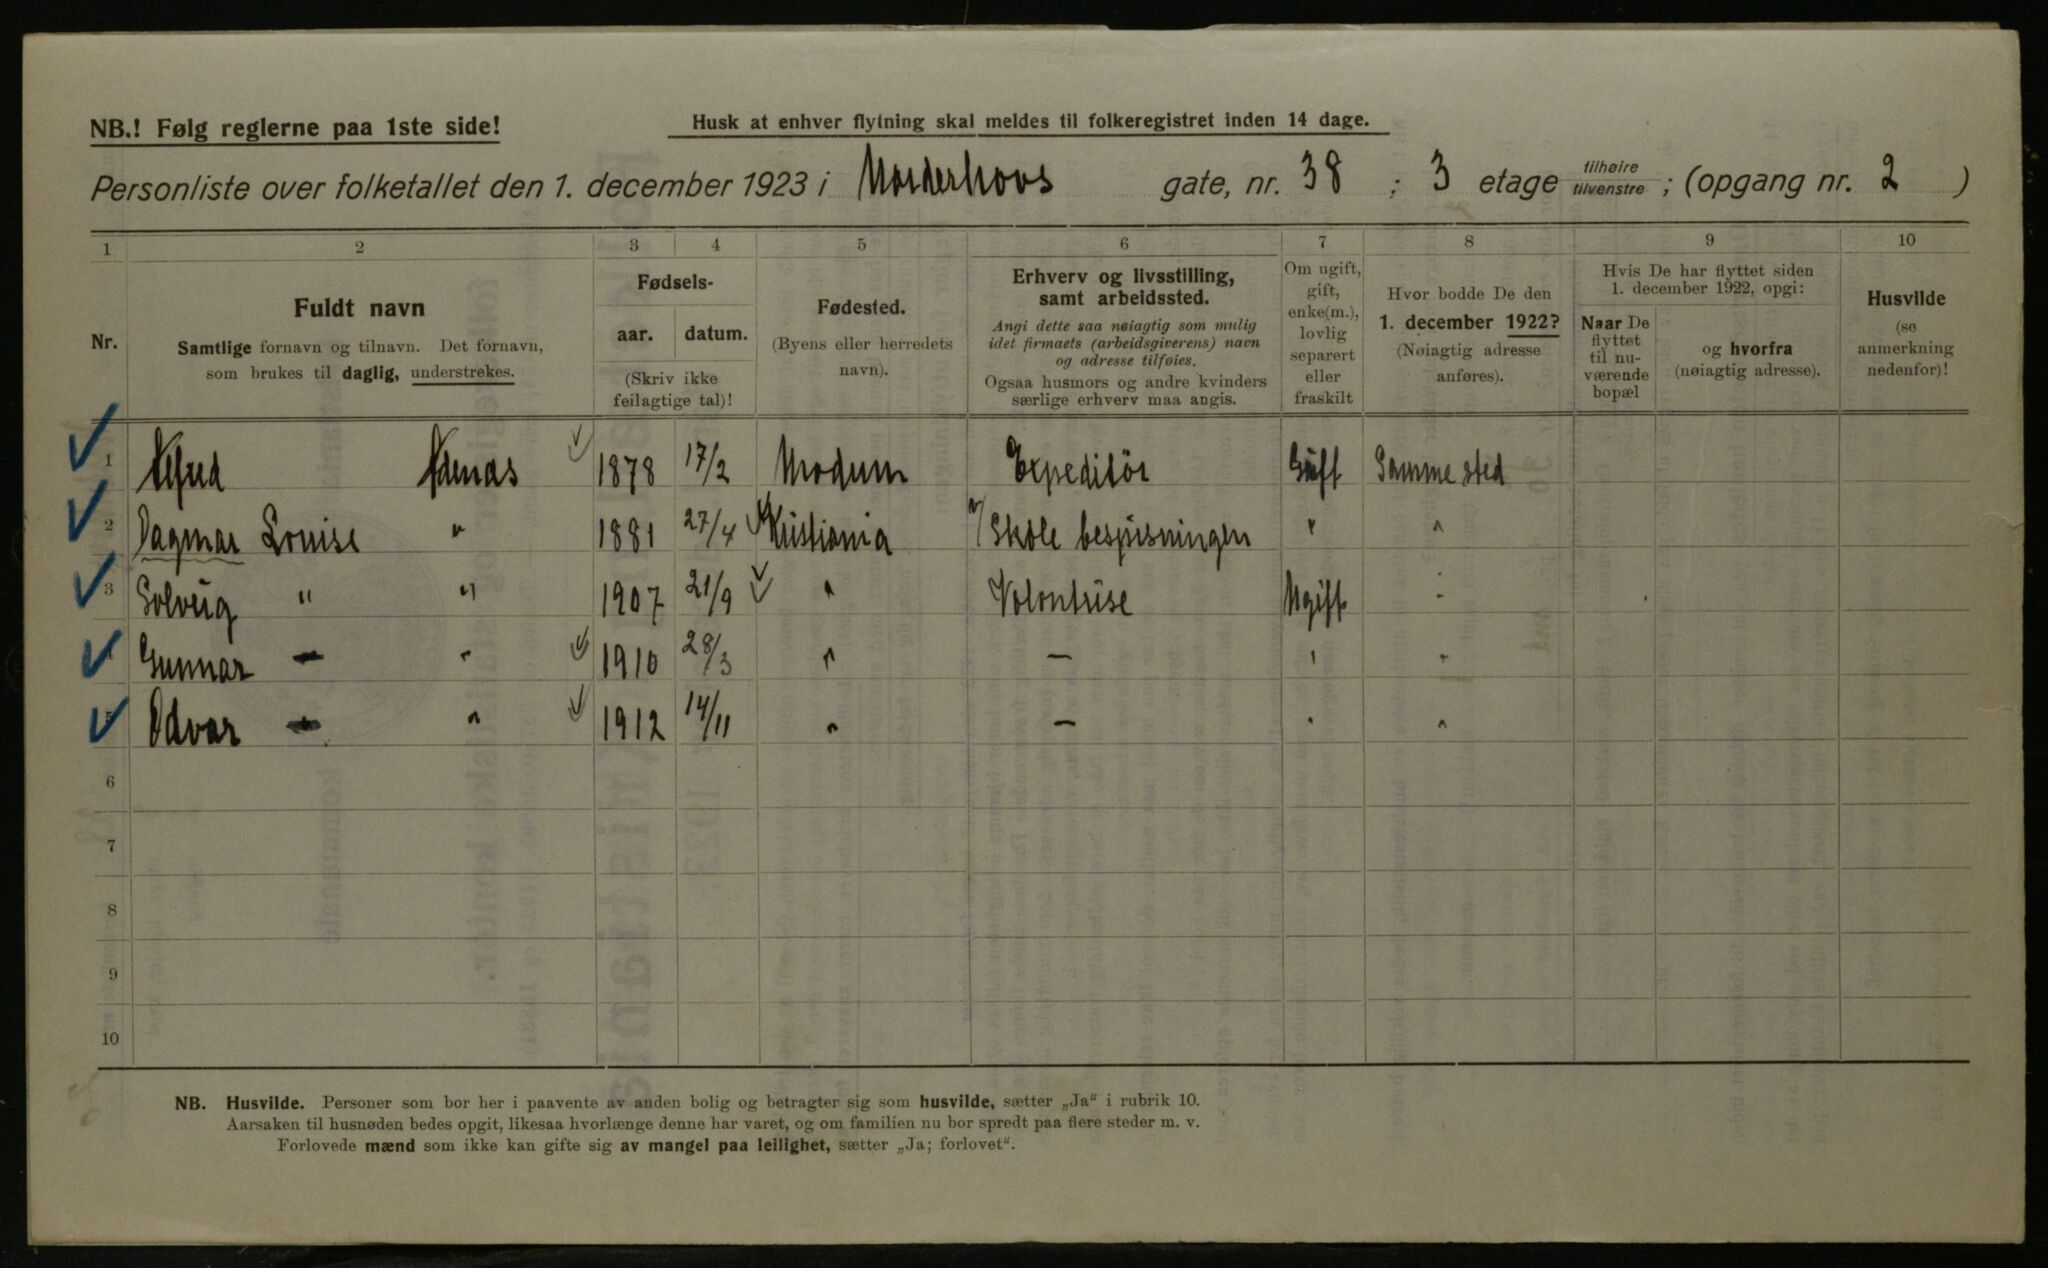 NB.! Følg reglerne paa 1ste side!
Husk at enhver flytning skal meldes til folkeregistret inden 14 dage.
Personliste over folketallet den 1. december 1923 i Norderhovs gate, nr. 38 ; 3 etage tilhøire tilvenstre ; (opgang nr. 2 )
1 2 3 4 5 6 7 8 9 10
Nr.
Fuldt navn
Samtlige fornavn og tilnavn. Det fornavn,
som brukes til daglig, understrekes.
Fødsels-
aar. datum.
(Skriv ikke
feilagtige tal)!
Fødested.
(Byens eller herredets
navn).
Erhverv og livsstilling,
samt arbeidssted.
Angi dette saa nøiagtig som mulig
idet firmaets (arbeidsgiverens) navn
og adresse tilføies.
Ogsaa husmors og andre kvinders
særlige erhverv maa angis.
Om ugift,
gift,
enke(m.),
lovlig
separert
eller
fraskilt
Hvor bodde De den
1. december 1922?
(Nøiagtig adresse
anføres).
Hvis De har flyttet siden
1. december 1922, opgi:
Naar De
flyttet
til nu-
værende
bopæl
og hvorfra
(nøiagtig adresse).
Husvilde
(se
anmerkning
nedenfor)!
1 Alfred Adenas 1878 17/2 Modum Expeditör Gift Samme sted
2 Dagmar Louise " 1881 27/4 Kristiania Skole bespisningen " "
3 Solveig " " 1907 21/9 " Volontrise Ugift "
4 Gunnar - " 1910 28/3 " - " "
5 Odvar - " 1912 14/11 " - " "
6
7
8
9
10
NB. Husvilde. Personer som bor her i paavente av anden bolig og betragter sig som husvilde, sætter „Ja“ i rubrik 10.
Aarsaken til husnøden bedes opgit, likesaa hvorlænge denne har varet, og om familien nu bor spredt paa flere steder m. v.
Forlovede mænd som ikke kan gifte sig av mangel paa leilighet, sætter „Ja; forlovet“.